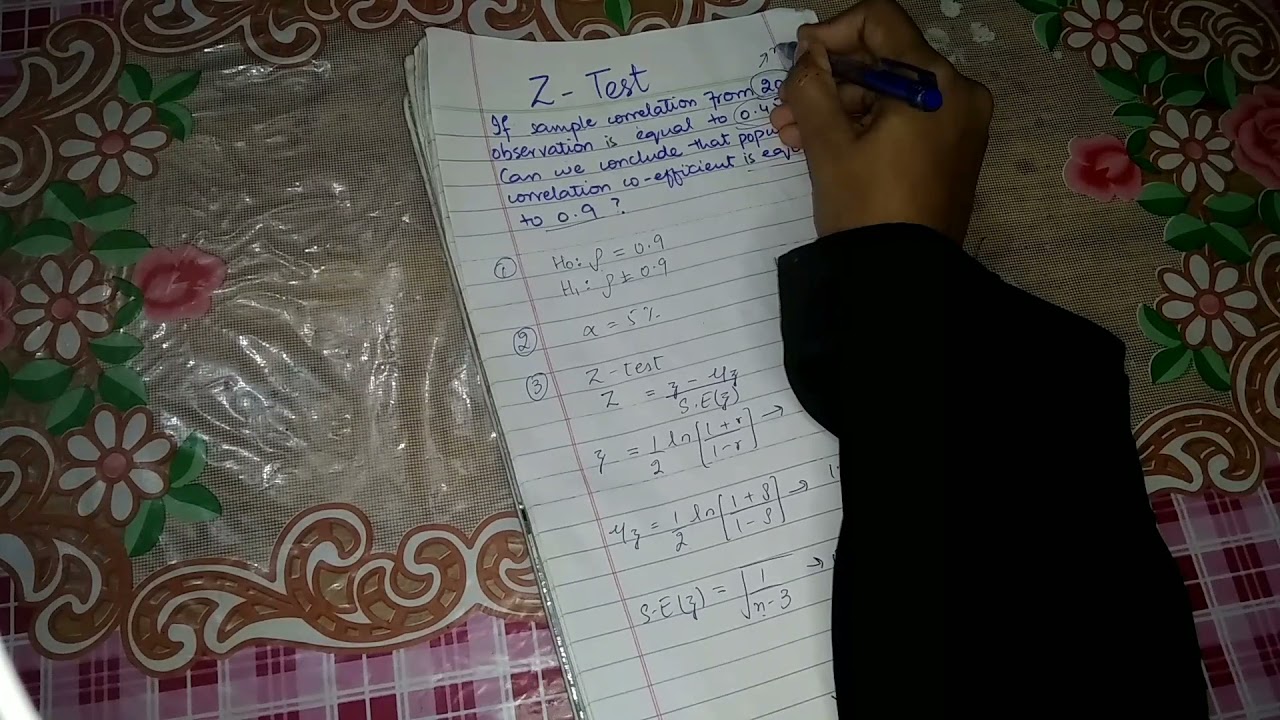 Z - Test
If sample correlation from 20
observation is equal to 0.4
Can we conclude that
correlation co-efficient is
to 0.9 ?
① H₀: ρ = 0.9
H₁: ρ ≠ 0.9
② α = 5%
③ Z - test
Z = (z - μz) / S.E(z)
z = 1/2 ln [(1 + r) / (1 - r)] →
μz = 1/2 ln [(1 + ρ) / (1 - ρ)] →
S.E(z) = √(1 / (n - 3)) →